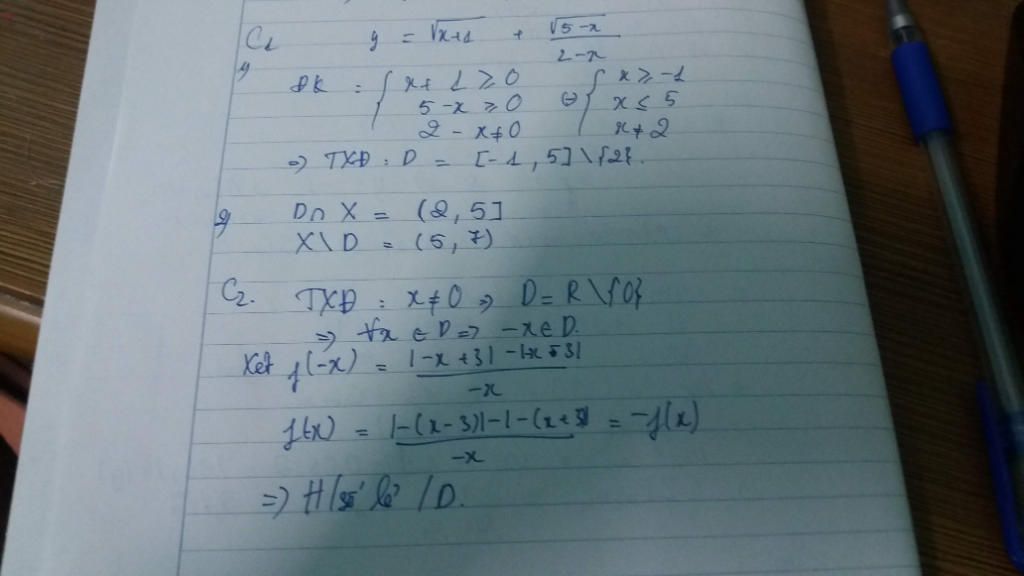 C1 y = √x+1 + √5-x / 2-x
1)
ĐK : { x+ 1 ≥ 0 ⇔ { x ≥ -1
5 -x ≥ 0 x ≤ 5
2 - x ≠ 0 x ≠ 2
=> TXĐ : D = [-1, 5] \ {2}.
2) D ∩ X = (2, 5]
X \ D = (5, 7)
C2. TXĐ : x ≠ 0 => D = R \ {0}
=> ∀x ∈ D => -x ∈ D.
Xét f(-x) = |-x +3| - |-x -3| / -x
f(-x) = |-(x-3)| - |-(x+3)| / -x = -f(x)
=> H/số lẻ /D.